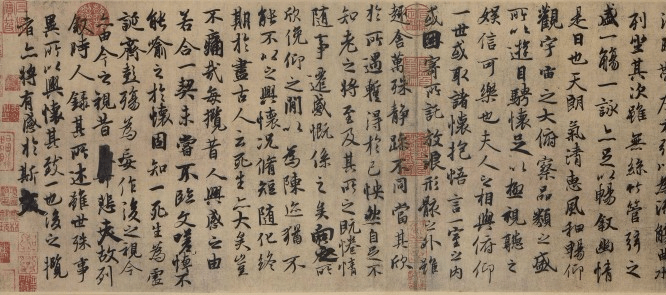 列坐其次雖無絲竹管弦之
盛一觴一詠亦足以暢敘幽情
是日也天朗氣清惠風和暢仰
觀宇宙之大俯察品類之盛
所以遊目騁懷足以極視聽之
娛信可樂也夫人之相與俯仰
一世或取諸懷抱悟言一室之內
或因寄所託放浪形骸之外雖
趣舍萬殊靜躁不同當其欣
於所遇蹔得於己怏然自足不
知老之將至及其所之既惓情
隨事遷感慨係之矣向之所
欣俛仰之間以為陳迹猶不
能不以之興懷況脩短隨化終
期於盡古人云死生亦大矣豈
不痛哉每攬昔人興感之由
若合一契未嘗不臨文嗟悼不
能喻之於懷固知一死生為虛
誕齊彭殤為妄作後之視今
亦由今之視昔悲夫故列
敘時人錄其所述雖世殊事
異所以興懷其致一也後之攬
者亦將有感於斯文